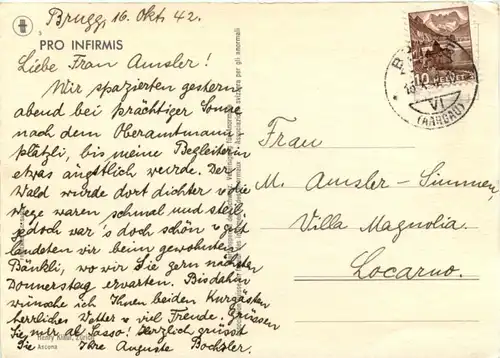 Brugg, 16. Okt. 42.
3
PRO INFIRMIS
Liebe Frau Amsler!
Wir spazierten gestern
abend bei prächtiger Sonne
nach dem Oberamtmann-
plätzli, bis meine Begleiterin
etwas ängstlich wurde. Der
Wald wurde dort dichter u. die
Wege waren schmal und steil,
jedoch war's doch schön u. gut
landeten wir beim gewohnten
Bänkli, wo wir Sie gern nächsten
Donnerstag erwarten. Bis dahin
wünsche ich Ihnen beiden Kurgästen
herrliches Wetter u. viel Freude. Grüssen
Sie mir ab Sasso! Herzlich grüsst
Sie Ihre Auguste Bochsler.
Ascona
10 HELVETIA
VI
(AARGAU)
Frau
M. Amsler-Simmen,
Villa Magnolia.
Locarno.